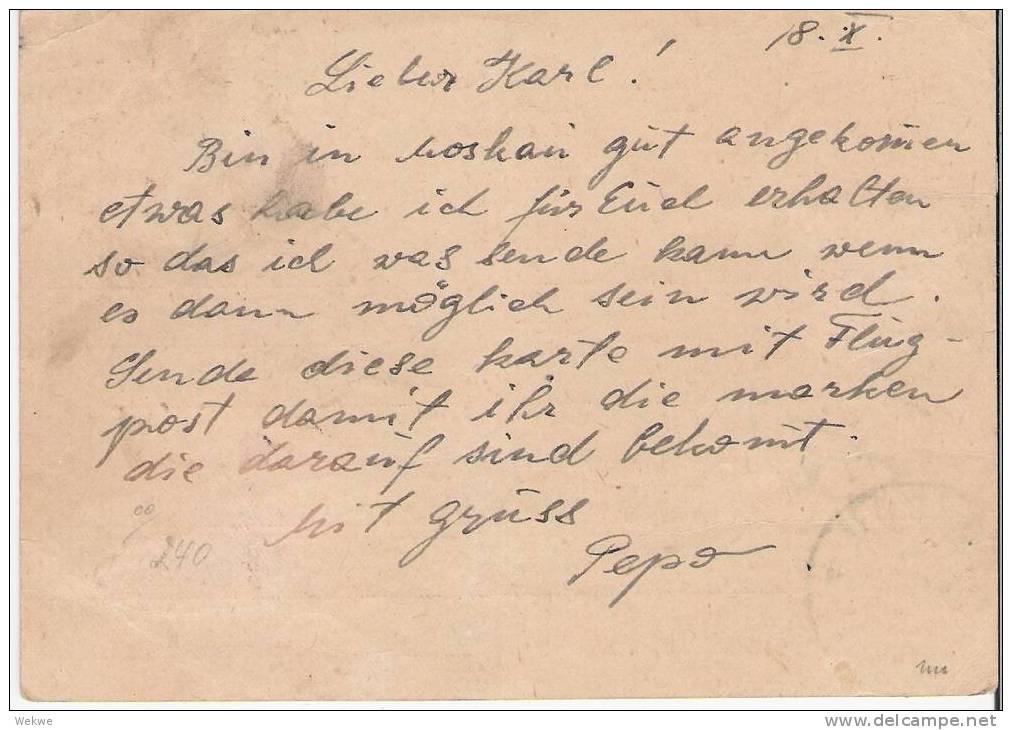 18. X.
Lieber Karl!
Bin in Moskau gut angekom̅en
etwas habe ich für Euch erhalten
so das ich was sende kann wenn
es dann möglich sein wird.
Sende diese karte mit Flug-
post damit ihr die marken
die darauf sind bekomt.
Mit grüss
Pepo
240
Wekwe
www.delcampe.net